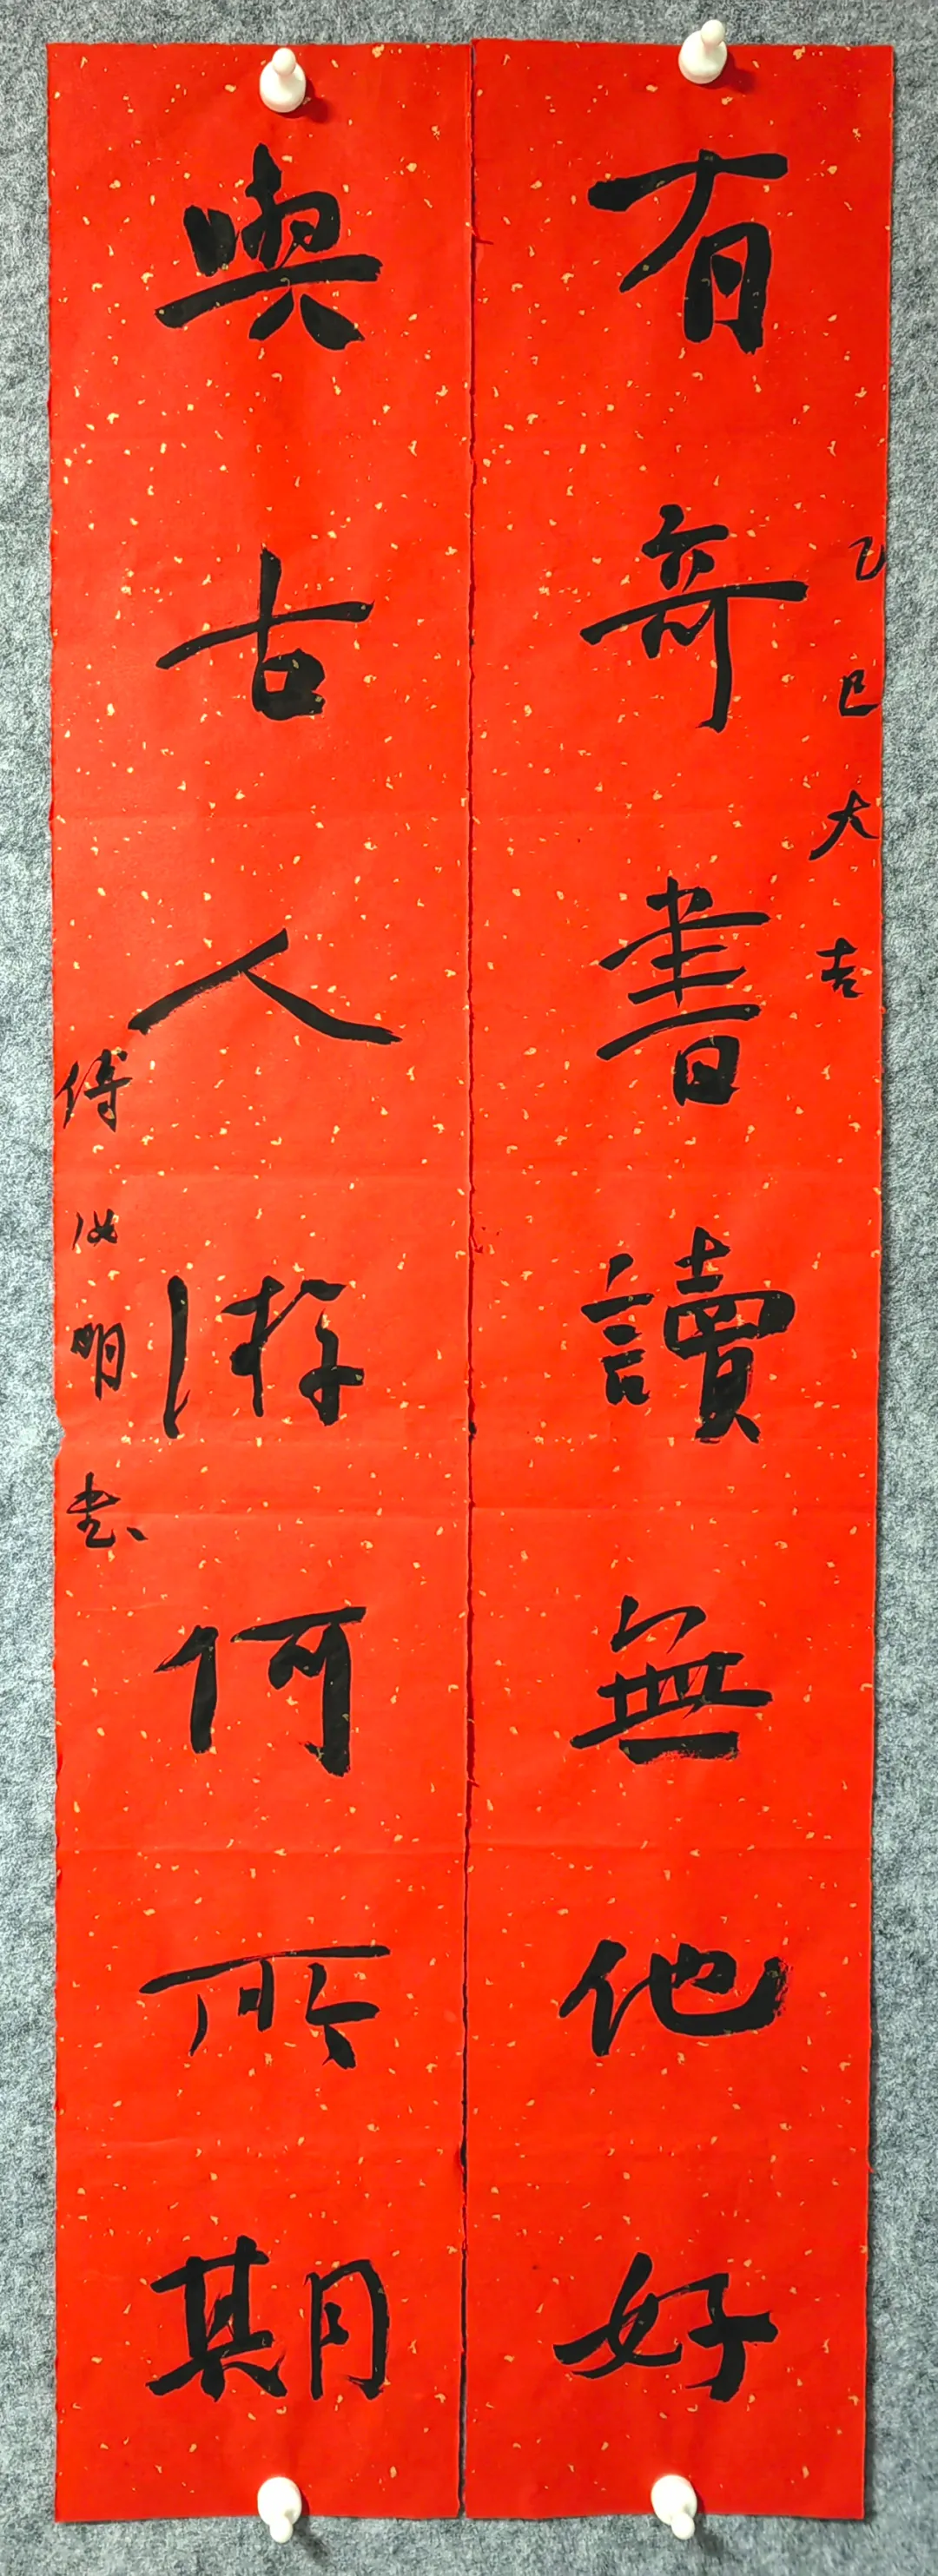 有奇書讀無他好
乙巳大吉
與古人游何所期
傅汝明书